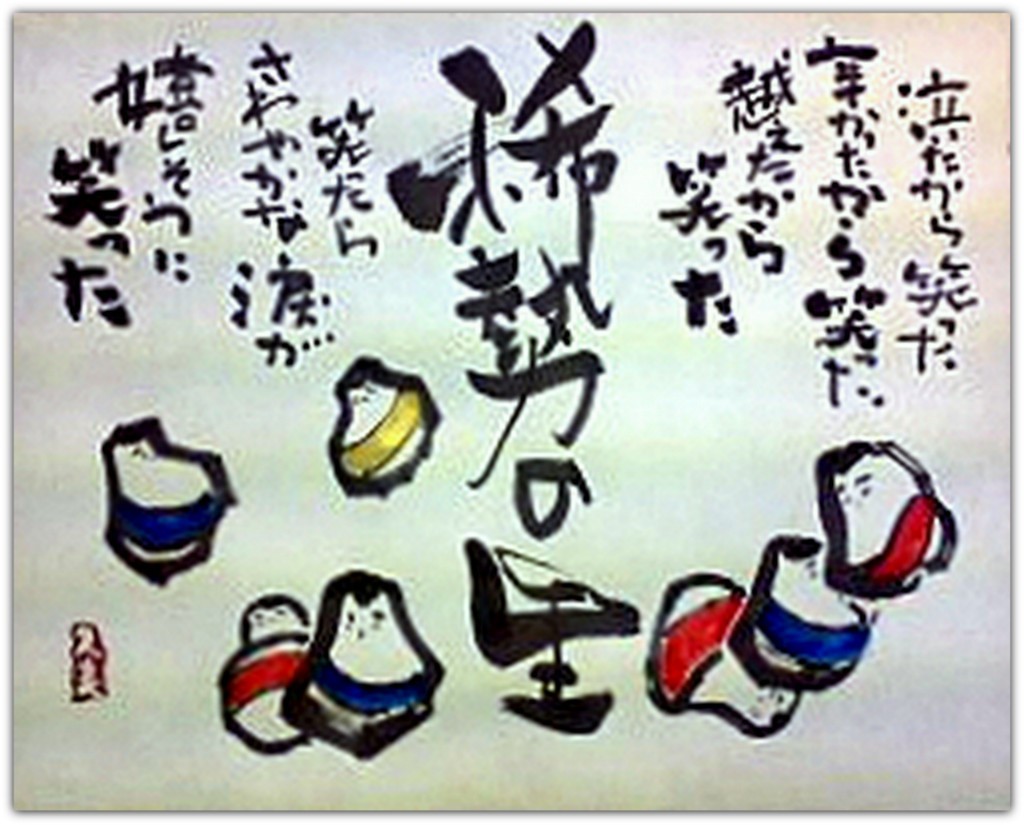 泣いたから笑った
辛かったから笑った
越えたから
笑った
稀勢の里
笑ったら
さわやかな涙が…
嬉しそうに
笑った